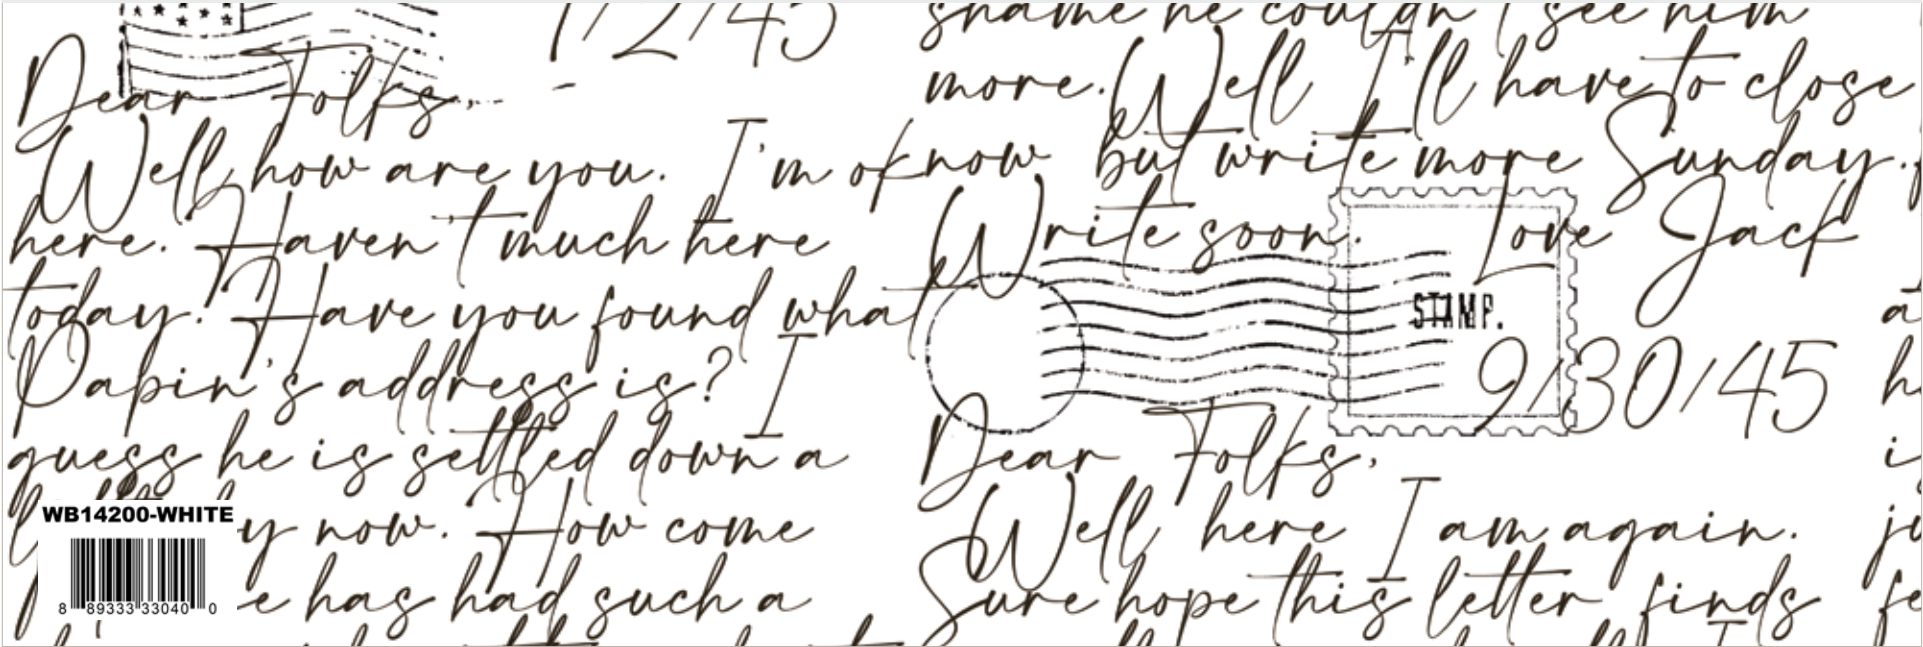 1/2/45
Dear Folks,
Well, how are you. I'm ok
here. Haven't much here
today. Have you found what
Papin's address is? I
guess he is settled down a
y now. How come
e has had such a
WB14200-WHITE
8 89333 33040 0
shame he couldn't see him
more. Well I'll have to close
now but write more Sunday.
Write soon. Love Jack
STAMP.
9/30/45
Dear Folks,
Well here I am again.
Sure hope this letter finds